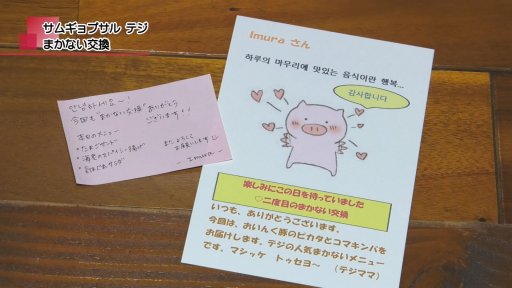 サムギョプサル テジ
まかない交換
안녕하세요~!
今回も まかない交換 ありがとう
ございます!!
本日のメニュー
・たまごサンド
・海老のスパイシー揚げ
また よろしく
お願いします
- Imura -
Imura さん
하루의 마무리에 맛있는 음식이란 행복...
감사합니다
楽しみにこの日を待っていました
♡二度目のまかない交換
いつも、ありがとうございます。
今回は、おいんく豚のピカタとコマキンパを
お届けします。テジの人気まかないメニュー
です。マシッケ トゥセヨ～ （テジママ）